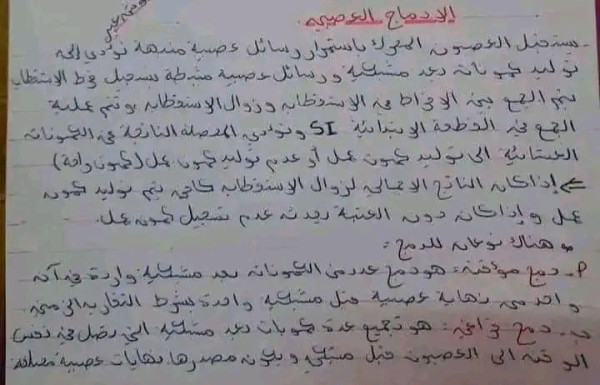 الإدماج العصبي
- يستقبل العصبون المحرك باستمرار رسائل عصبية منبهة تؤدي إلى
توليد كمونات بعد مشبكية ورسائل عصبية مثبطة بتسجيل فرط الاستقطاب
يتم الجمع بين الافراط في الاستقطاب وزوال الاستقطاب يتم عملية
الجمع في القطعة الابتدائية SI وتؤدي المحصلة الناتجة في الكمونات
الغشائية الى توليد كمون عمل أو عدم توليد كمون عمل (كمون راحة)
إذا كان الناتج الاجمالي لزوال الاستقطاب كافي يتم توليد كمون
عمل وإذا كان دون العتبة يحدث عدم تسجيل كمون عمل.
وهناك نوعان للدمج :
P- دمج مؤقت: هو دمج عدد من الكمونات بعد مشبكية واردة في آن
واحد من نهاية عصبية قبل مشبكية واحدة بشرط التقارب الزمني
ب- دمج فراغي: هو تجميع عدة كمونات بعد مشبكية التي تصل في نفس
الوقت الى العصبون قبل مشبكي ويكون مصدرها نهايات عصبية مختلفة